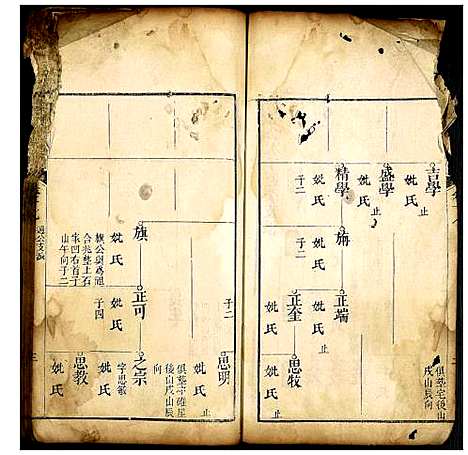 吉學
妣氏
止
盛學
妣氏
止
精學
妣氏
子二
旃
妣氏
止
正端
妣氏
止
正奎
妣氏
子二
思牧
妣氏
止
俱葬宅後山
戌山辰向
子二
思明
妣氏
止
俱葬
後山戌山辰
向
旗
妣氏
旗公與為冠
合兆葬上石
山午向子二
正可
妣氏
子四
之宗
妣氏
字思敏
思教
妣氏